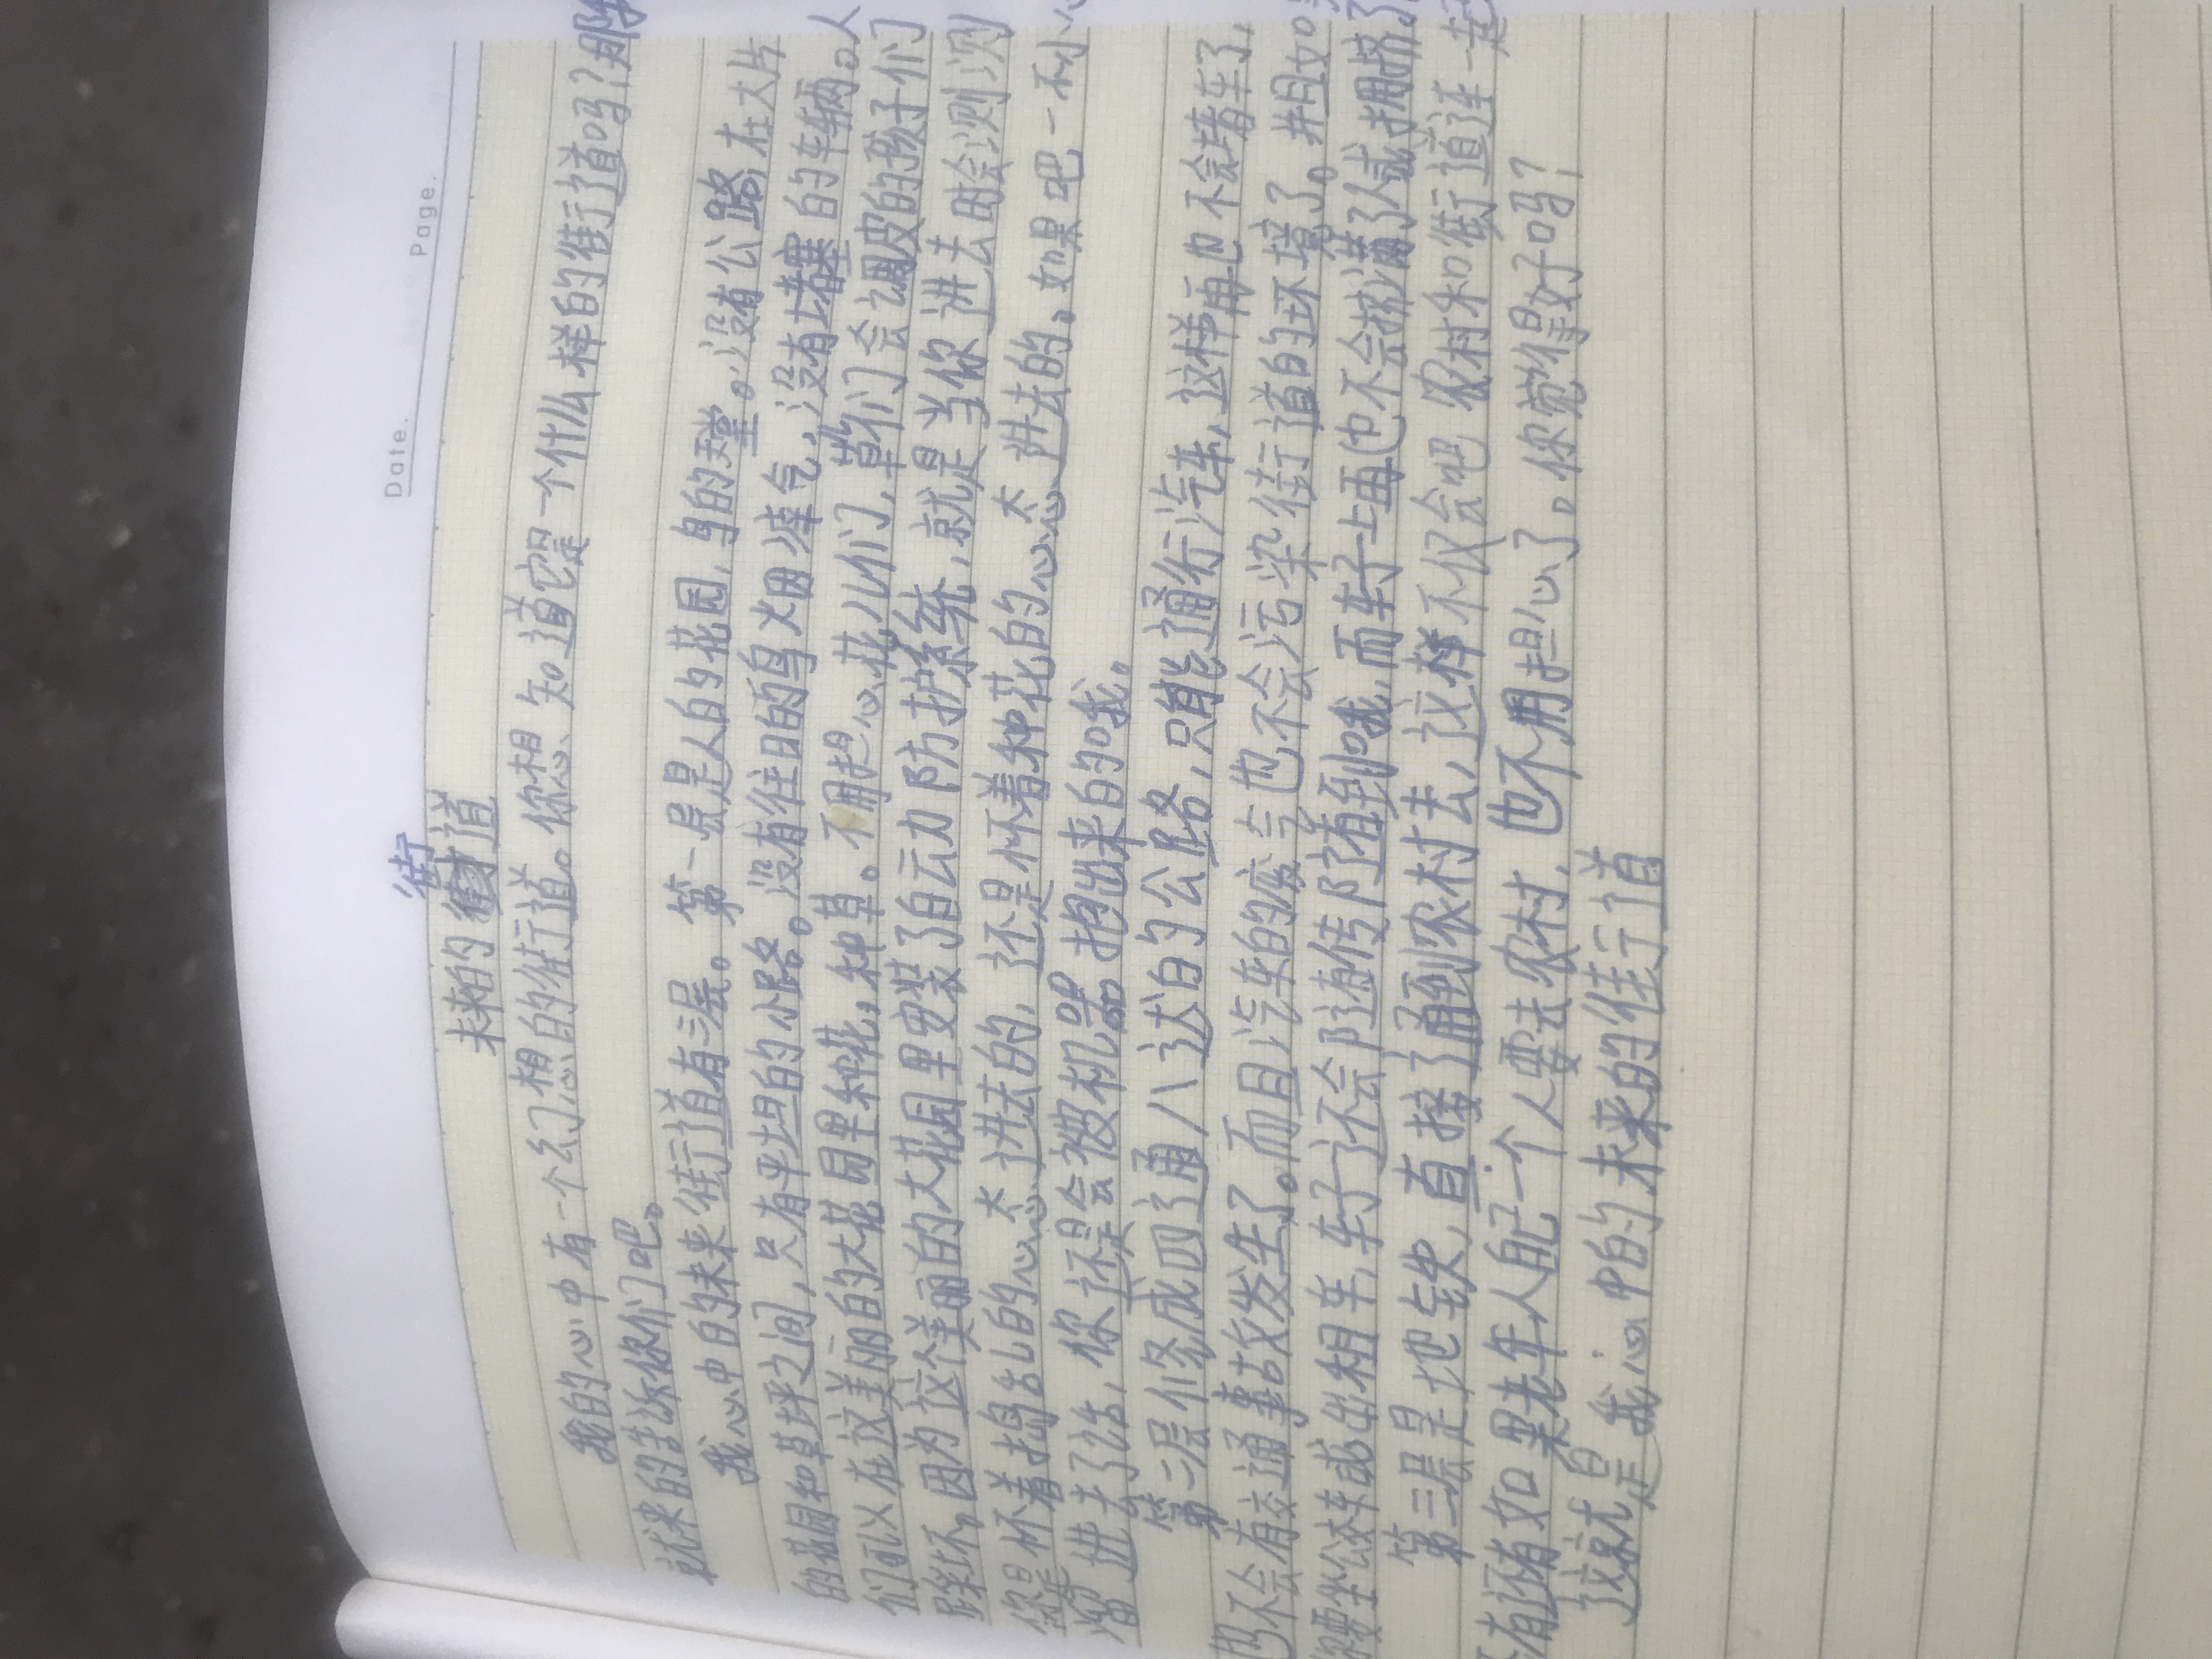 Date.
Page.
街
未来的街道
我的心中有一个幻想的街道。你想、知道它是一个什么样的街道吗？那
就来的告诉你们吧。
我心中的未来街道有三层。第一层是人的花园，鸟的天堂。没有公路，在大片
的花园和草坪之间，只有平坦的小路。没有往日的乌烟瘴气，没有堵塞的车辆。人
们可以在这美丽的大花园里种花，种草。不用担心花儿们，草们会调皮的孩子们
踩坏。因为这个美丽的大花园里安装了自云力防护系统，就是当你进去时会测测
你是怀着捣乱的心态进去的，还是怀着种花的心态进去的。如果吧一不小心
溜进去了话，你还是会被机器抱出来的哦。
第二层修成四通八达的公路，只能通行汽车，这样再也不会堵车了，
也不会有交通事故发生了。而且汽车的废气也不会污染街道的环境了。并且如果
你要坐公交车或出租车，车子还会随传随到哦，而车子上再也不会挤满了人或拥挤了。
第三层是地铁，直接通到农村去，这样不仅会吧农村和街道连一起
还有如果老年人自己一个人要去农村，也不用担心了。你觉得好吗？
这就是我心中的未来的街道